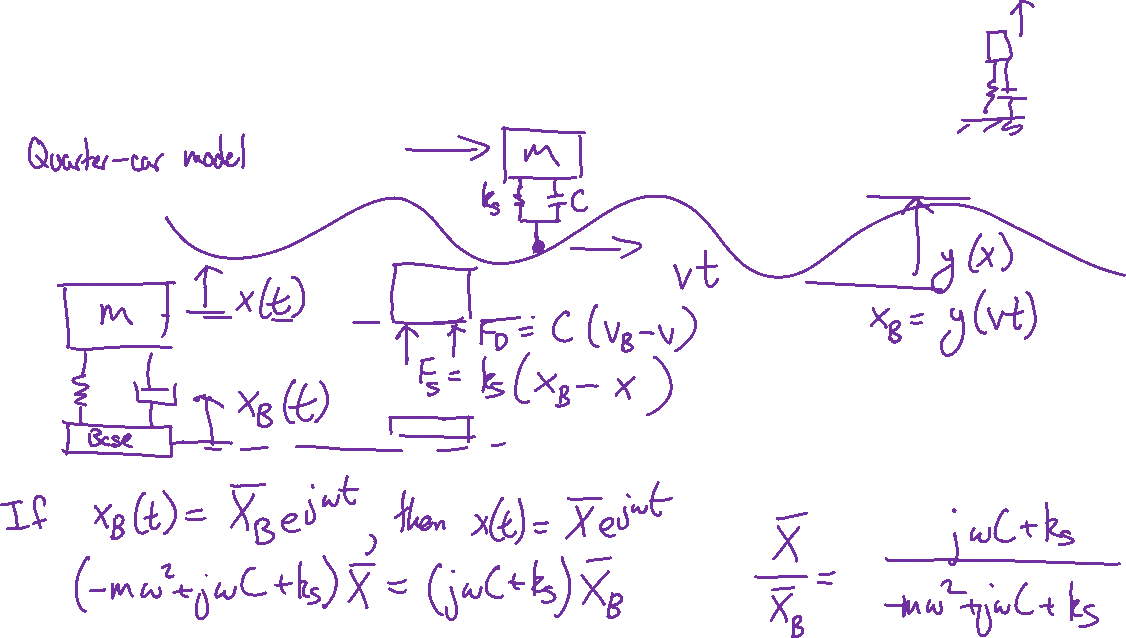 Quarter-car model
m
ks C
vt
y(x)
xB = y(vt)
m
x(t)
FD = C (vB - v)
Fs = ks (xB - x)
xB(t)
Base
If xB(t) = X̅B e^jωt, then x(t) = X̅ e^jωt
(-mω² + jωC + ks) X̅ = (jωC + ks) X̅B
X̅ / X̅B = (jωC + ks) / (-mω² + jωC + ks)